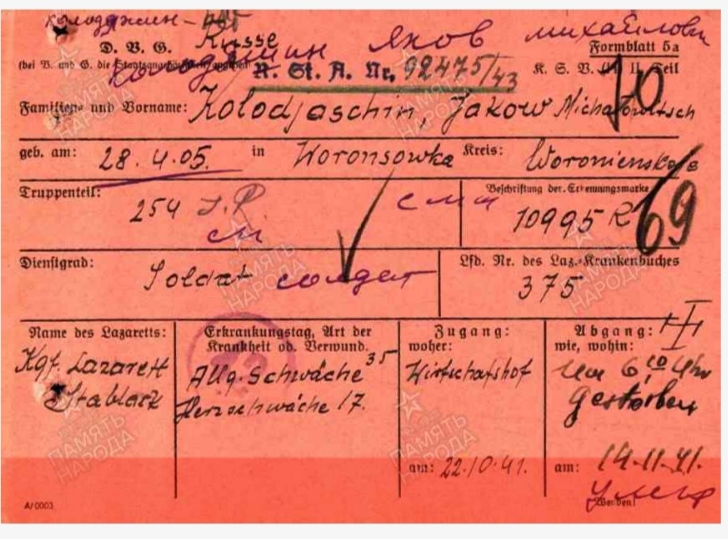 D. V. G. Russe
Formblatt 5a
(bei V. und G. die Staatsangehörigkeit angeben)
R. St. A. Nr. 92475/43
K. S. V. II Teil
Яков Михайлови
10
Familien- und Vorname: Kolodjaschin, Jakow Michailowitsch
geb. am: 28.4.05. in Woronsowka Kreis:
Truppenteil: 254 J.R
сп
Beschriftung der Erkennungsmarke
10995 R
69
Dienstgrad: Soldat солдат
Lfd. Nr. des Laz.-Krankenbuches
375
Name des Lazaretts:
Kgf. Lazarett
Stablack
Erkrankungstag, Art der
Krankheit od. Verwund.
Allg. Schwäche 35
Herzschwäche 17.
Zugang:
woher:
Wirtschaftshof
am: 22.10.41.
Abgang:
wie, wohin:
Um 6,10 Uhr
gestorben
am: 14.11.41.
умер
(Wenden!)
A/0003
ПАМЯТЬ
НАРОДА